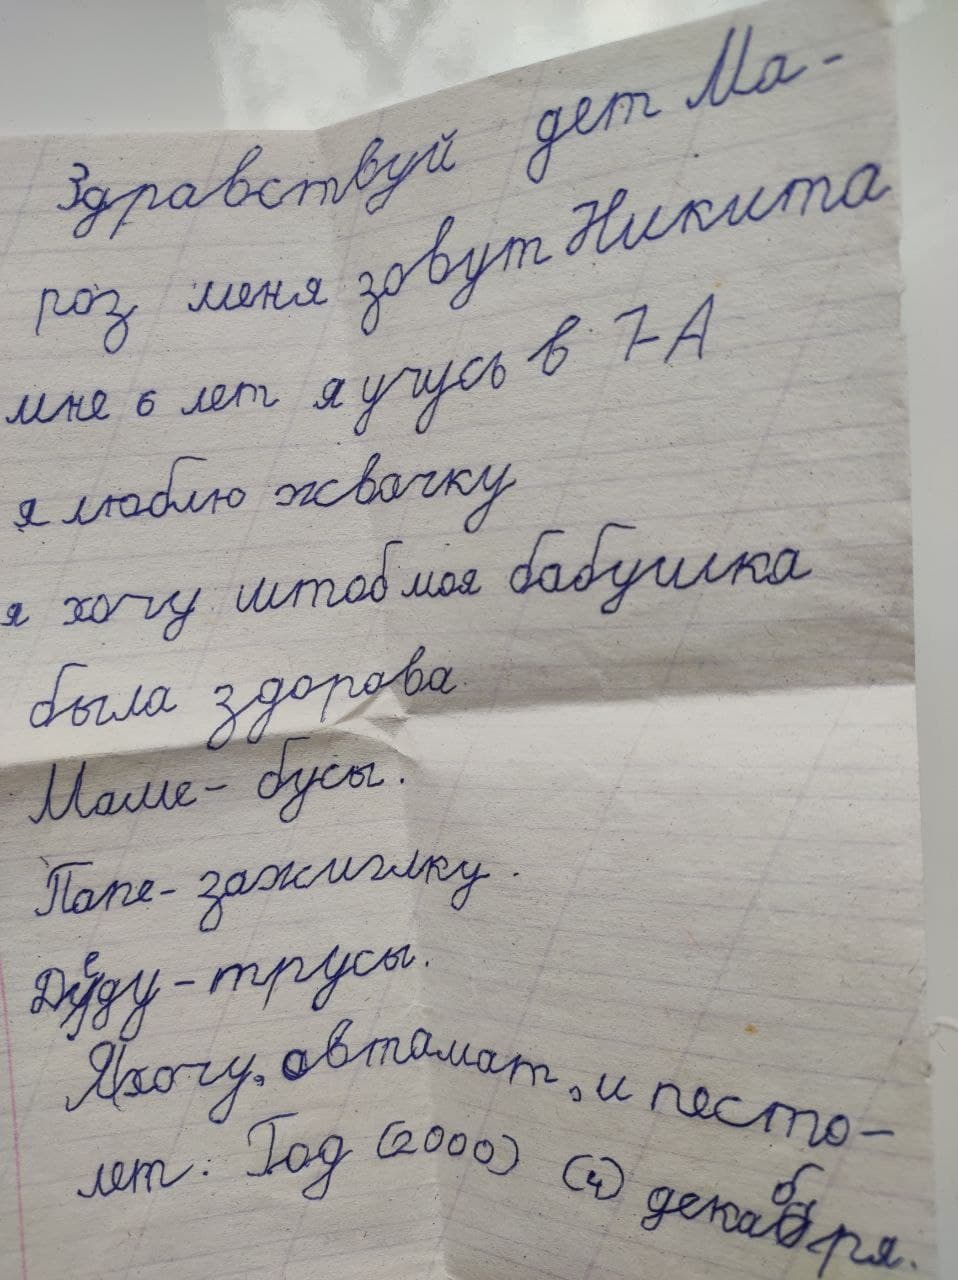 Здравствуй дет Ма-
роз меня зовут Никита
мне 6 лет я учусь в 7-А
я люблю жвачку
я хочу штоб моя бабушка
была здорова.
Маме- бусы.
Папе- зажиглку.
Деду- трусы.
Я хочу, автамат, и песто-
лет. Год (2000) (4) декабря.